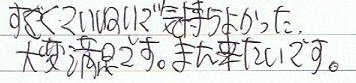 すごくていねいで気持ちよかった。
大変満足です。また来たいです。